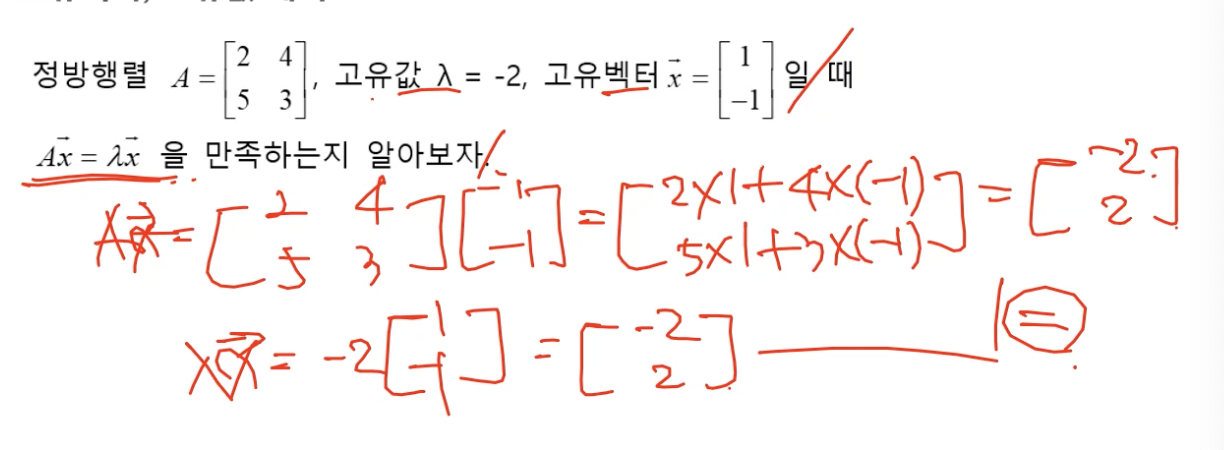 정방행렬 A = [2 4; 5 3], 고유값 λ = -2, 고유벡터 x⃗ = [1; -1] 일 때
Ax⃗ = λx⃗ 을 만족하는지 알아보자.
Ax⃗ = [2 4; 5 3] [1; -1] = [2×1+4×(-1); 5×1+3×(-1)] = [-2; 2]
λx⃗ = -2 [1; -1] = [-2; 2] =